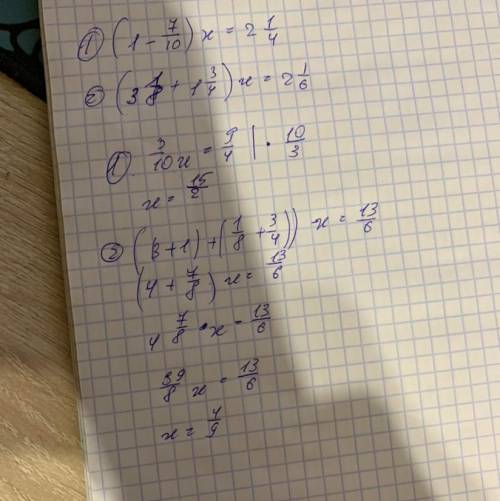 ① (1 - 7/10) x = 2 1/4
② (3 1/8 + 1 3/4) x = 2 1/6
①. 3/10 x = 9/4 | · 10/3
x = 15/2
② (3+1) + (1/8 + 3/4)) x = 13/6
(4 + 7/8) x = 13/6
4 7/8 · x = 13/6
39/8 x = 13/6
x = 4/9